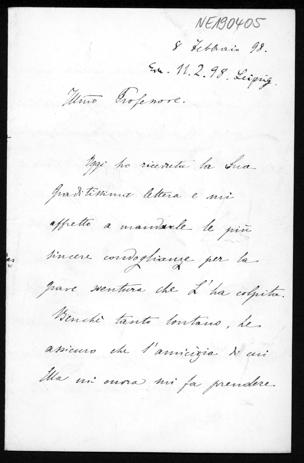 NE190405
8 Febbraio 98.
Em. 11.2.98. Leipzig.
Illmo Professore.
Oggi ho ricevuta la Sua
graditissima lettera e mi
affretto a mandarle le più
sincere condoglianze per la
grave sventura che L'ha colpita.
Benchè tanto lontano, Le
assicuro che l'amicizia di cui
Ella mi onora mi fa prendere